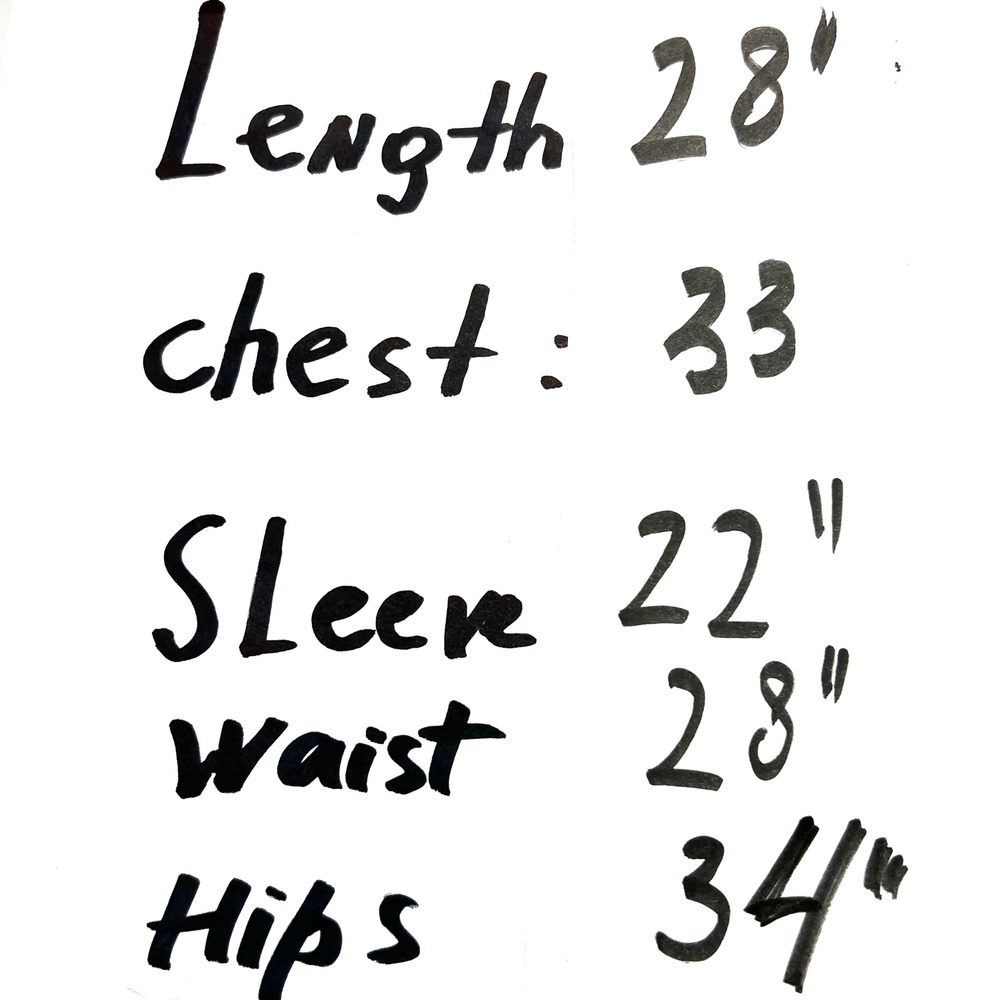 Length 28"
chest: 33
Sleeve 22"
Waist 28"
Hips 34"